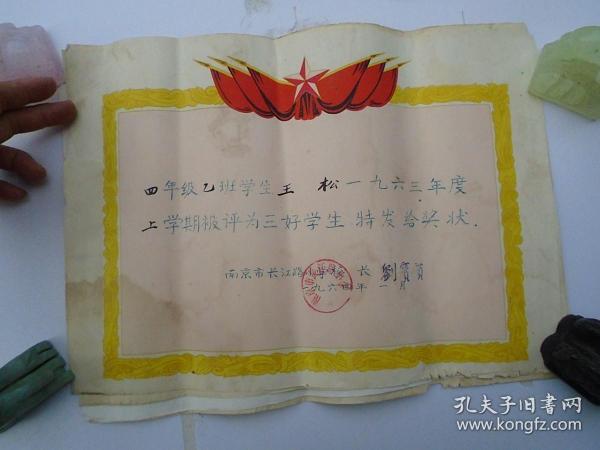 四年级乙班学生王 松一九六三年度
上学期被评为三好学生.特发给奖状.
南京市长江路小学校 长 劉
一九六四年 一 月
孔夫子旧书网
www.kongfz.com